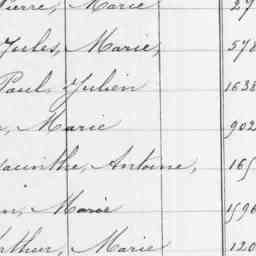 Pierre, Marie 27
Jules, Marie, 578
Paul Julien 1638
Marie 902
Hyacinthe, Antoine, 165
Marie 1596
Arthur, Marie 120